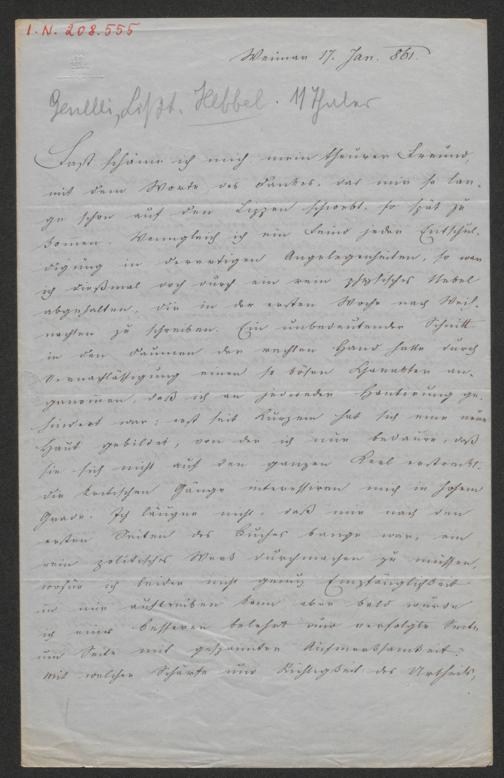 I.N. 208.555
Weimar 17. Jan. 861.
Genelli, Lißt. Hebbel. 11 Thaler
Fast schäme ich mich mein theurer Freund,
mit dem Worte des Dankes, das mir so lan-
ge schon auf den Lippen schwebt, so spät zu
komen. Wenngleich ich ein Feind jeder Entschul-
digung in derartigen Angelegenheiten, so war
ich dießmal doch durch ein rein physisches Uebel
abgehalten, Dir in der ersten Woche nach Weih-
nachten zu schreiben. Ein unbedeutender Schnitt
in den Daumen der rechten Hand hatte durch
Vernachlässigung einen so bösen Charakter an-
genommen, daß ich an jedweder Hantierung ge-
hindert war; erst seit Kurzem hat sich eine neue
Haut gebildet, von der ich nur bedaure, daß
sie sich nicht auf den ganzen Kerl erstreckt.
Die kritischen Gänge interessiren mich in hohem
Grade. Ich läugne nicht, daß mir nach den
ersten Seiten des Buches bange war, ein
rein politisches Werk durchmachen zu müssen,
wofür ich leider nicht genug Empfänglichkeit
in mir auftreiben kann aber bald wurde
ich eines besseren belehrt und verfolgte Seite
um Seite mit gespannter Aufmerksamkeit.
Mit welcher Schärfe und Richtigkeit des Urtheils,